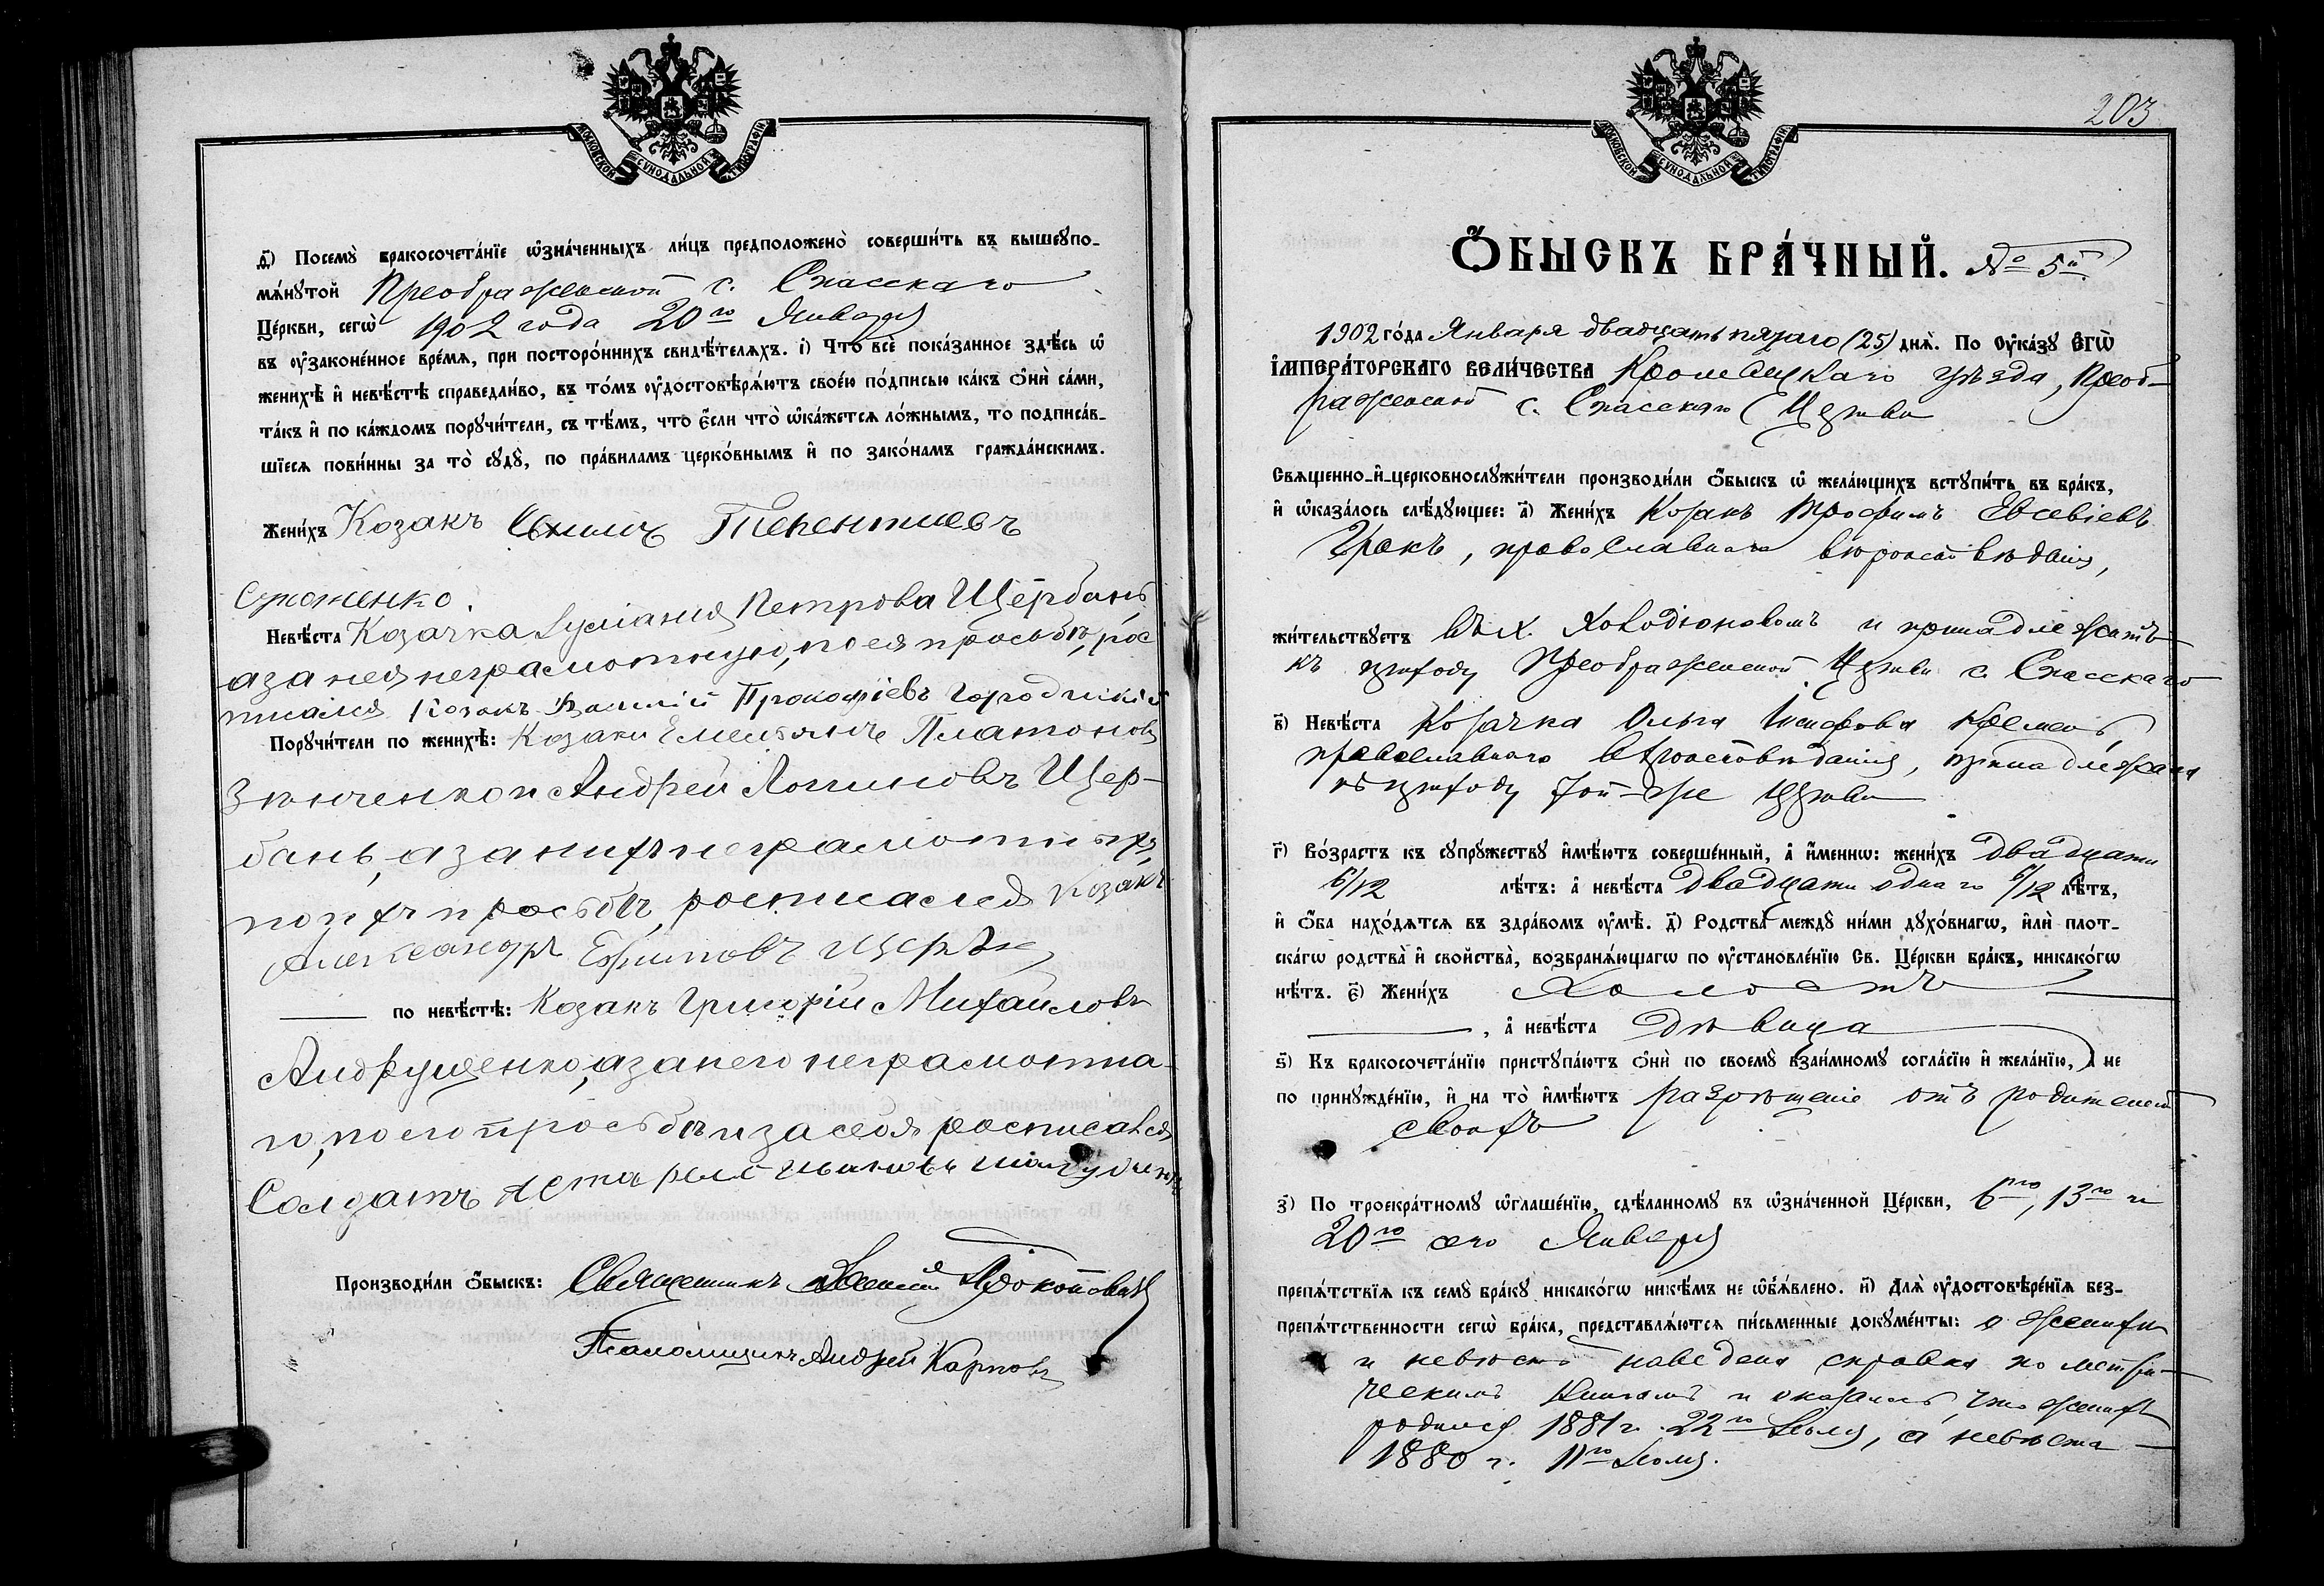 МОСКОВСКОЙ СУНОДАЛЬНОЙ ТИПОГРАФІИ
д҃) Посемꙋ̀ бракосочета́нїе ѡ҆зна́ченныхъ ли́цъ предположено̀ соверши́ть въ вышеꙋпо-
мѧ́нꙋтой Преображенской с. Спасскаго
Це́ркви, сегѡ̀ 1902 года 20го Января
въ ᲂу҆законе́нное вре́мѧ, при посторо́ннихъ свидѣ́телѧхъ. і҃) Что̀ всѐ пока́занное здѣ́сь ѡ҆
женихѣ̀ и҆ невѣ́стѣ справедли́во, въ то́мъ ᲂу҆достовѣрѧ́ютъ свое́ю по́дписью ка́къ ѻ҆нѝ са́ми,
та́къ и҆ по ка́ждомъ порꙋчи́тели, съ тѣ́мъ, что є҆́сли что̀ ѡ҆ка́жетсѧ ло́жнымъ, то подписа́в-
шїесѧ пови́нны за то̀ сꙋдꙋ̀, по пра́виламъ церко́внымъ и҆ по зако́намъ гражда́нскимъ.
Жени́хъ Козакъ Терентиевъ
Невѣ́ста Козачка Петрова Щербань
а за нея неграмотную, по ея просьбѣ, рос
писался Козакъ Прокофіевъ Городискій
Порꙋчи́тели по женихѣ̀: Козаки Емельянъ Платоновъ
Зинченко и Андрей Логиновъ Щер-
бань, а за нихъ неграмотныхъ,
по ихъ просьбѣ, росписался Козакъ
Александръ Ефимовъ
по невѣ́стѣ: Козакъ Григорій Михайловъ
Андрущенко, а за него неграмотна-
го, по его просьбѣ и за себя росписався
Солдатъ
Производи́ли ѻ҆́быскъ: Священникъ Прокоповичъ
Псаломщикъ Андрей Карповъ
203
МОСКОВСКОЙ СУНОДАЛЬНОЙ ТИПОГРАФІИ
Ѻ҆́БЫСКЪ БРА́ЧНЫЙ. № 5й
1902 го́да Января двадцать пятаго (25) днѧ̀. По ᲂу҆ка́зꙋ Є҆ГѠ̀
І҆МПЕРА́ТОРСКАГО ВЕЛИ́ЧЕСТВА уѣзда, Преоб-
раженской с. Спасскаго Церкви
Свѧщенно-и҆-церковнослꙋжи́тели производи́ли ѻ҆́быскъ ѡ҆ жела́ющихъ встꙋпи́ть въ бра́къ,
и҆ ѡ҆каза́лось слѣ́дꙋющее: а҃) Жени́хъ Козакъ Трофимъ Евсевіевъ
Грекъ, православнаго вѣроисповѣданія,
жи́тельствꙋетъ въ х. и принадлежитъ
къ приходу Преображенской Церкви с. Спасскаго
в҃) Невѣ́ста Козачка Ольга
православнаго вѣроисповѣданія, принадлежащая
къ приходу той-же Церкви
г҃) Во́зрастъ къ сꙋпрꙋ́жествꙋ и҆мѣ́ютъ соверше́нный, а҆ и҆́меннѡ: жени́хъ двадцати
6/12 лѣ́тъ: а҆ невѣ́ста двадцати одного 6/12 лѣ́тъ,
и҆ ѻ҆́ба нахо́дѧтсѧ въ здра́вомъ ᲂу҆мѣ̀. д҃) Родства̀ междꙋ̀ ни́ми дꙋхо́внагѡ, и҆лѝ плот-
ска́гѡ родства̀ и҆ свойства̀, возбранѧ́ющагѡ по ᲂу҆становле́нїю Св. Це́ркви бра́къ, никако́гѡ
нѣ́тъ. є҃) Жени́хъ Холостъ
, а҆ невѣ́ста дѣвица
ѕ҃) Къ бракосочета́нїю пристꙋпа́ютъ ѻ҆нѝ по своемꙋ̀ взаи́мномꙋ согла́сїю и҆ жела́нїю, а҆ не
по принꙋжде́нїю, и҆ на то̀ и҆мѣ́ютъ разрѣшеніе отъ родителей
своихъ
з҃) По троекра́тномꙋ ѡ҆глаше́нїю, сдѣ́ланномꙋ въ ѡ҆зна́ченной Це́ркви, 6го, 13го и
20го сего Января
препѧ́тствїѧ къ семꙋ̀ бра́кꙋ никако́гѡ никѣ́мъ не ѡ҆б̾ѧ́влено. и҃) Длѧ̀ ᲂу҆достовѣре́нїѧ без-
препѧ́тственности сегѡ̀ бра́ка, представлѧ́ютсѧ пи́сьменные докꙋме́нты: о женихѣ
и невѣстѣ наведена справка по метри-
ческимъ книгамъ и оказалось, что женихъ
родился 1881 г. 22го Іюля, а невѣста
1880 г. 11го Іюля.